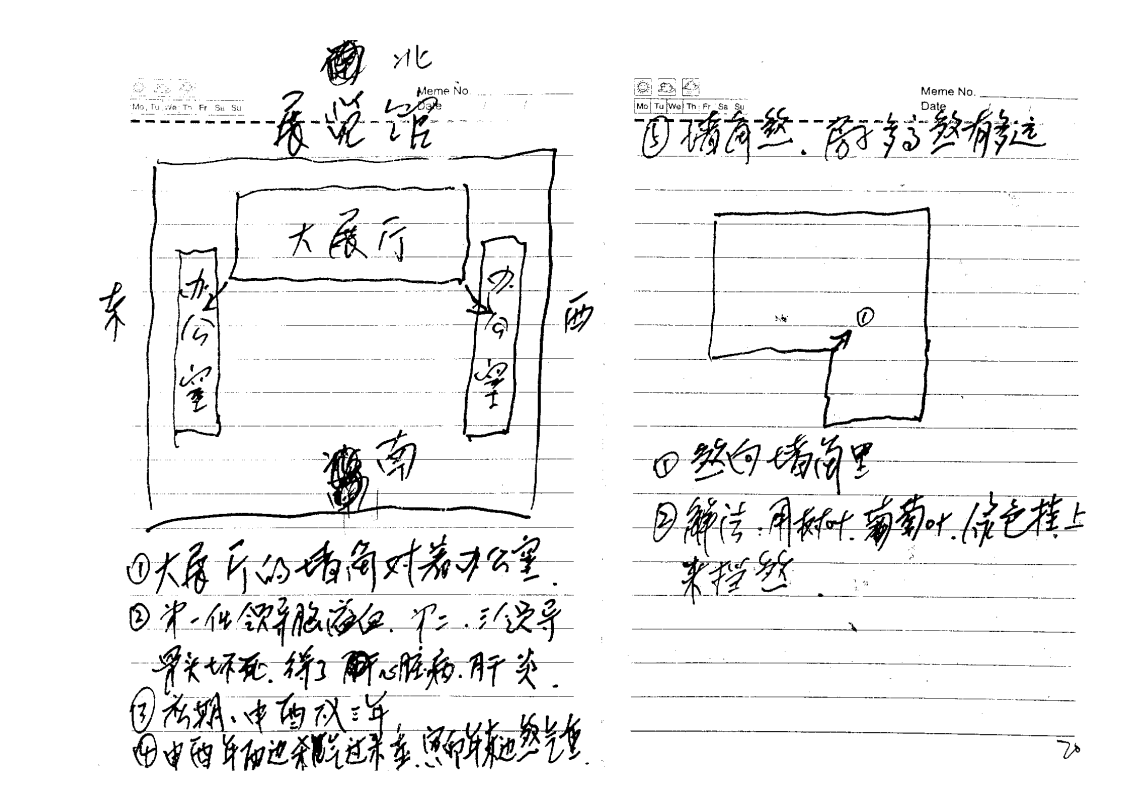 北
Meme No.
Date
Mo Tu We Th Fr Sa Su
展览馆
大展厅
办公室
办公室
东
西
南
①大展厅的墙角对着办公室.
②第一任领导脑溢血.第二.三领导
骨头坏死.得了心脏病.肝炎.
③应期、申酉戌三年
④申酉年西边杀气过来重.寅卯年东边煞气重.
Meme No.
Date
Mo Tu We Th Fr Sa Su
⑤墙角煞.房子多高煞有多远
①
①煞向墙角里
②解法.用树叶.葡萄叶.绿色挂上
来挡煞.
20